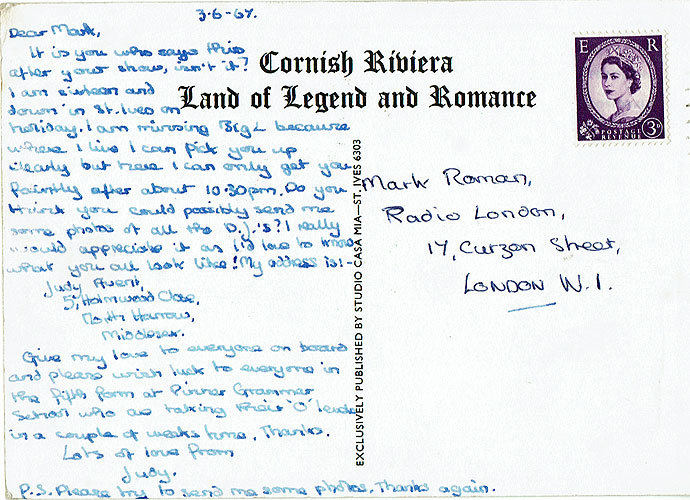 3-6-67.
Dear Mark,
It is you who says this
after your show, isn't it?
I am sixteen and
down in St. Ives on
holiday. I am missing Big L because
where I live I can pick you up
clearly but here I can only get you
faintly after about 10.30pm. Do you
think you could possibly send me
some photos of all the D.J.'s? I really
would appreciate it as I'd love to know
what you all look like! My address is:-
Judy Avent,
5, Holmwood Close,
North Harrow,
Middlesex.
Give my love to everyone on board
and please wish luck to everyone in
the fifth form at Pinner Grammar
School who are taking their 'O' levels
in a couple of weeks time. Thanks.
Lots of love from
Judy.
P.S. Please try to send me some photos. Thanks again.
Cornish Riviera
Land of Legend and Romance
EXCLUSIVELY PUBLISHED BY STUDIO CASA MIA—ST. IVES 6303
E R
POSTAGE
REVENUE
3D
Mark Roman,
Radio London,
17, Curzon Street,
LONDON W.1.